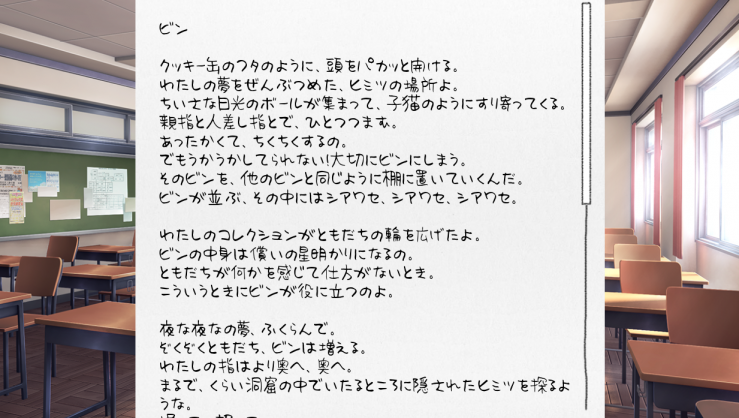 ビン
クッキー缶のフタのように、頭をパカッと開ける。
わたしの夢をぜんぶつめた、ヒミツの場所よ。
ちいさな日光のボールが集まって、子猫のようにすり寄ってくる。
親指と人差し指とで、ひとつつまむ。
あったかくて、ちくちくするの。
でもうかうかしてられない!大切にビンにしまう。
そのビンを、他のビンと同じように棚に置いていくんだ。
ビンが並ぶ、その中にはシアワセ、シアワセ、シアワセ。
わたしのコレクションがともだちの輪を広げたよ。
ビンの中身は償いの星明かりになるの。
ともだちが何かを感じて仕方がないとき。
こういうときにビンが役に立つのよ。
夜な夜なの夢、ふくらんで。
ぞくぞくともだち、ビンは増える。
わたしの指はより奥へ、奥へ。
まるで、くらい洞窟の中でいたるところに隠されたヒミツを探るよ
うな。